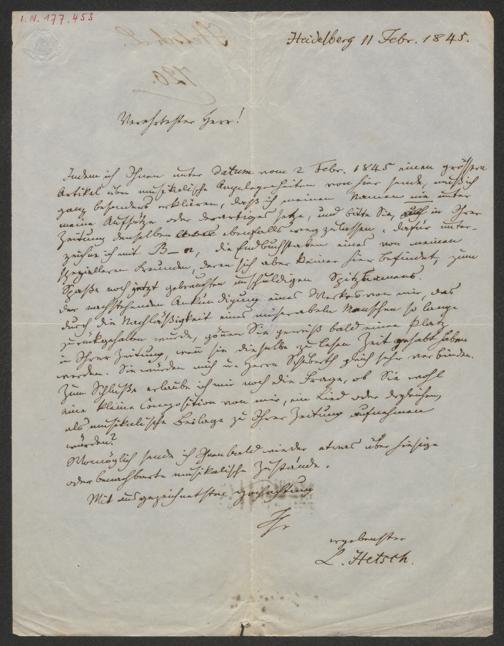 I.N. 177.453
Heidelberg 11 Febr. 1845.
Verehrtester Herr!
Indem ich Ihnen unter Datum vom 2 Febr. 1845 einen größern
Artikel über musikalische Angelegenheiten von hier sende, muß ich
ganz besonders erklären, daß ich meinen Namen nie unter
meine Aufsätze oder derartiges setze, und bitte Sie, auch in Ihrer
Zeitung denselben ebenfalls wegzulassen, dafür unter-
zeichne ich mit B–n, die Endbuchstaben eines von meinen
speziellern Freunden, deren sich aber keiner hier befindet, zum
Spaße noch jetzt gebrauchten unschuldigen Spitznamens.
Der nachstehenden Ankündigung eines Werkes von mir, das
durch die Nachlässigkeit eines miserablen Menschen so lange
zurückgehalten wurde, gönnen Sie gewiß bald einen Platz
in Ihrer Zeitung, wenn Sie dieselbe zu lesen Zeit gehabt haben
werden. Sie würden mich u. Herrn Schuberth gleich sehr verbinden.
Zum Schluße erlaube ich mir noch die Frage, ob Sie wohl
eine kleine Composition von mir, ein Lied oder dergleichen,
als musikalische Beilage zu Ihrer Zeitung aufnehmen
würden?
Womöglich sende ich Ihnen bald wieder etwas über hiesige
oder benachbarte musikalische Zustände.
Mit ausgezeichnetster Hochachtung
Ihr
ergebenster
L. Hetsch.